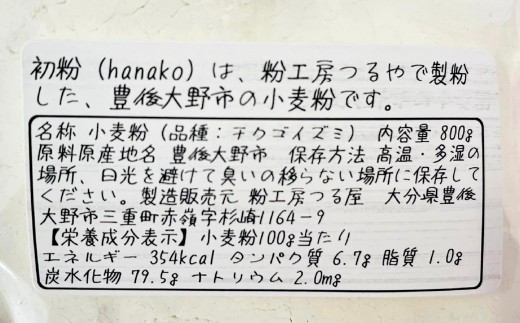 初粉（hanako）は、粉工房つるやで製粉
した、豊後大野市の小麦粉です。
名称 小麦粉（品種：チクゴイズミ） 内容量 800g
原料原産地名 豊後大野市 保存方法 高温・多湿の
場所、日光を避けて臭いの移らない場所に保存して
ください。製造販売元 粉工房つる屋 大分県豊後
大野市三重町赤嶺字杉崎1164-9
【栄養成分表示】小麦粉100g当たり
エネルギー 354kcal タンパク質 6.7g 脂質 1.0g
炭水化物 79.5g ナトリウム 2.0mg